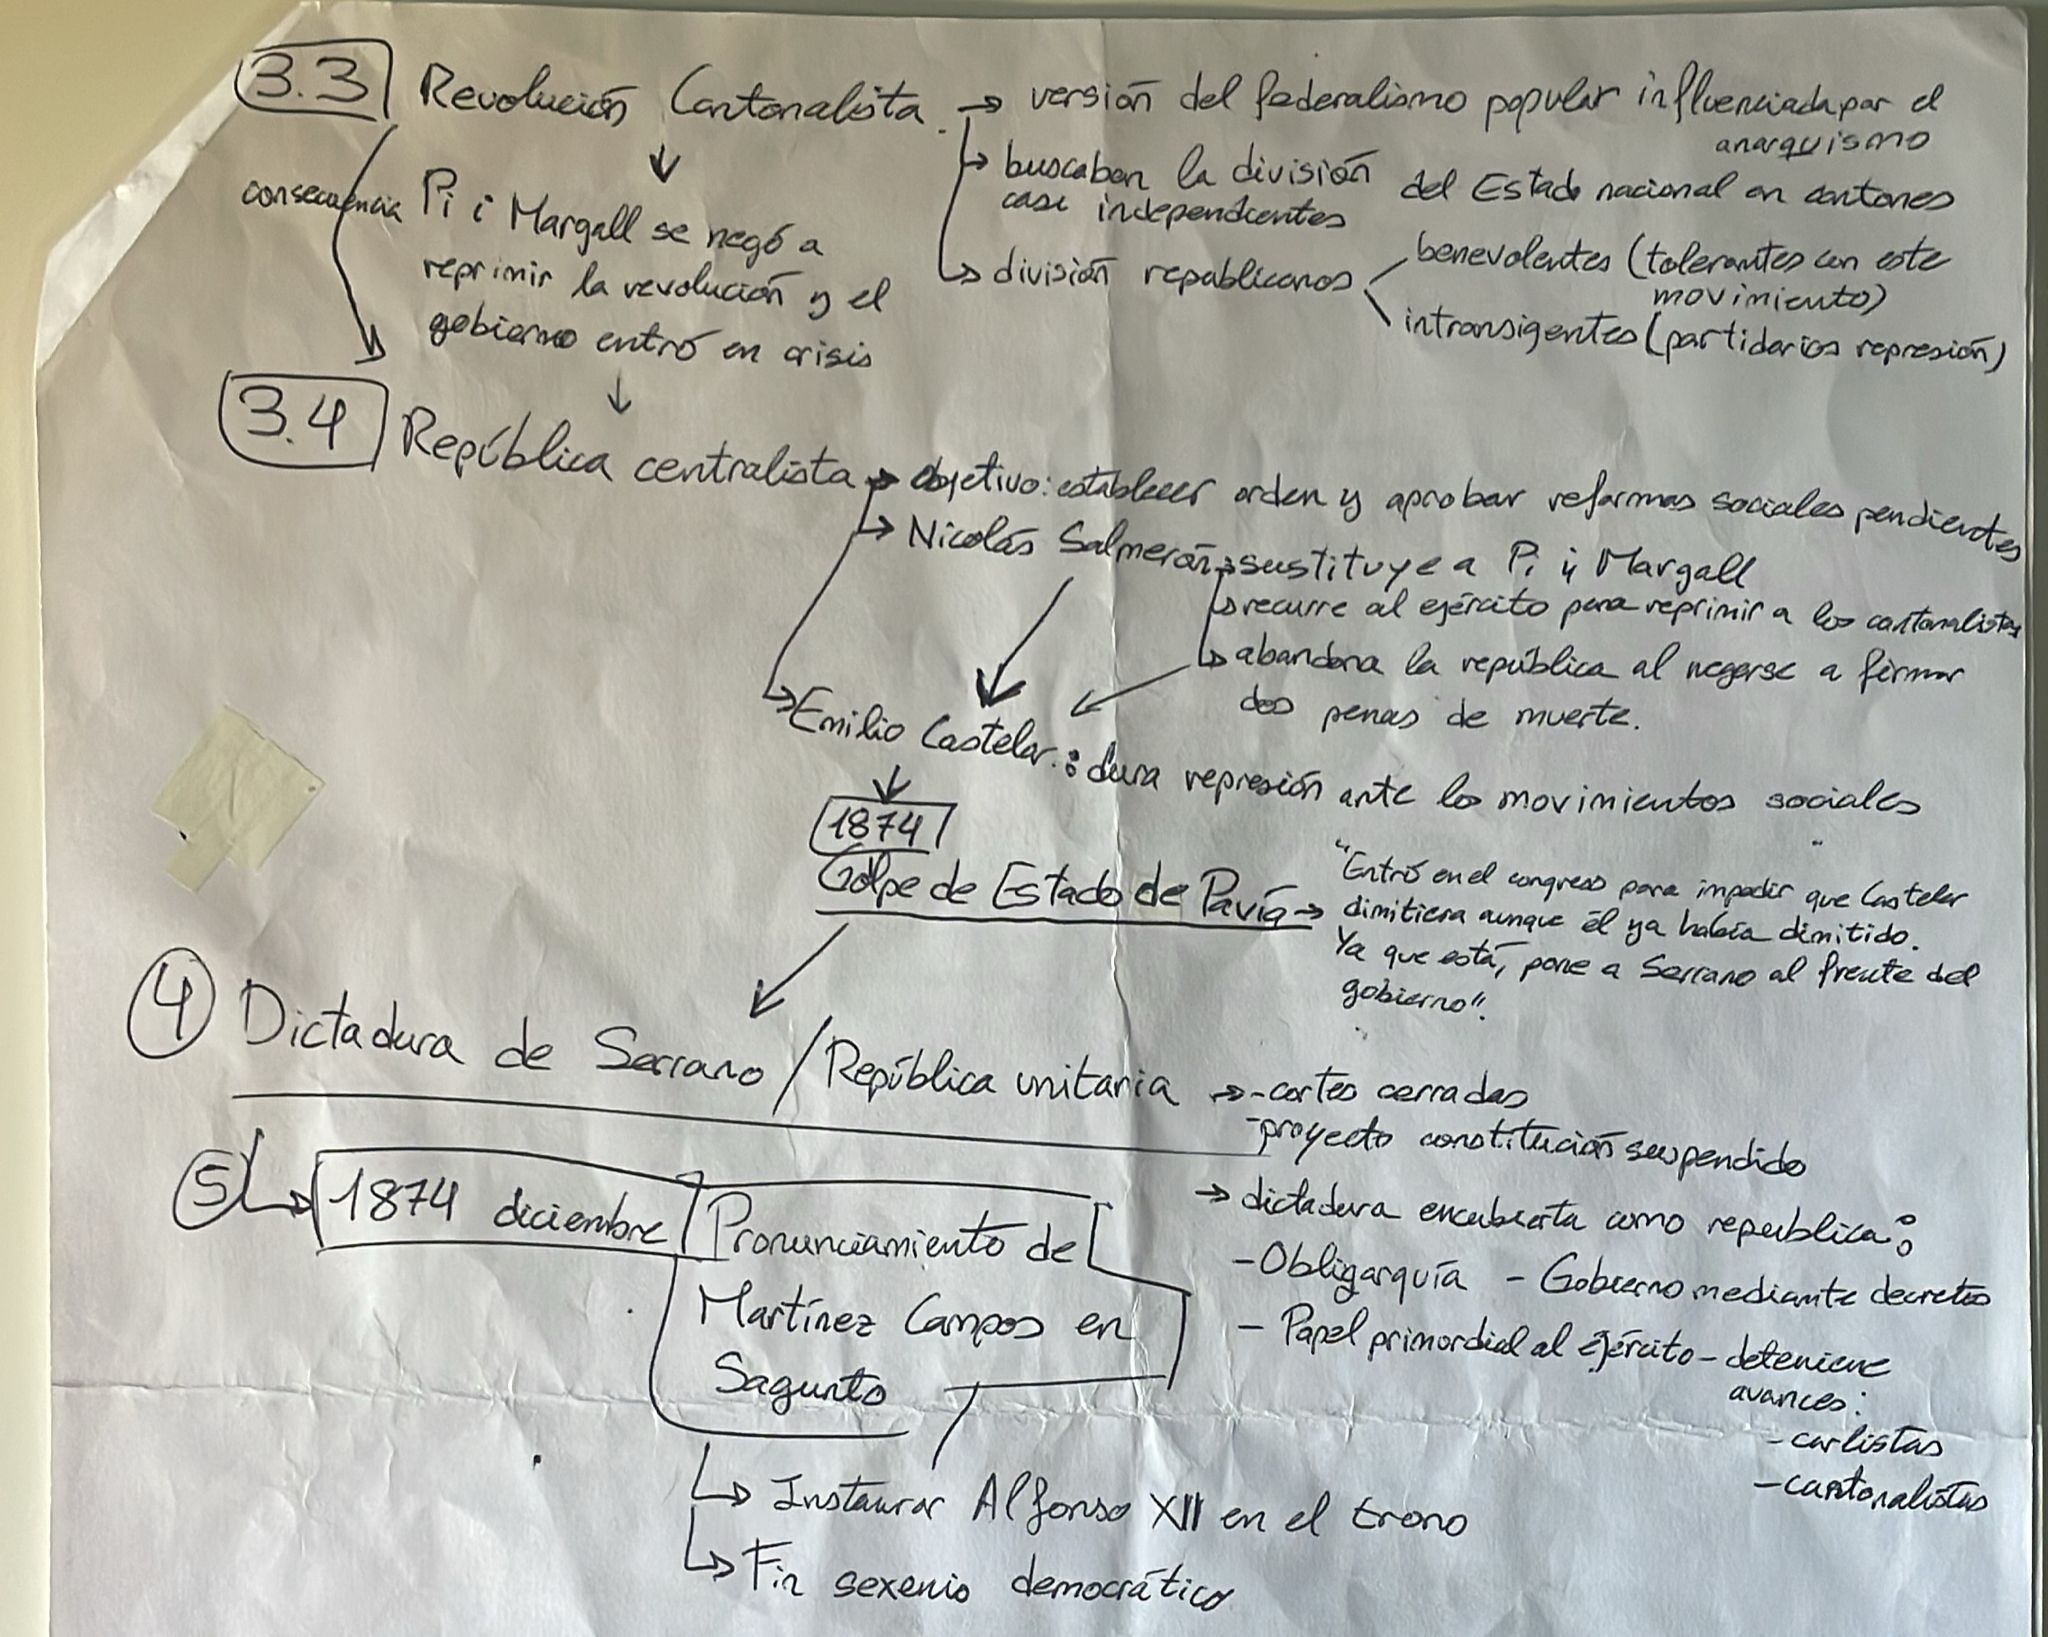 3.3 Revolución Cantonalista. → versión del federalismo popular influenciada por el
anarquismo
↳ buscaban la división del Estado nacional en cantones
casi independientes
↳ división republicanos
benevolentes (tolerantes con este
movimiento)
intransigentes (partidarios represión)
consecuencia
Pi i Margall se negó a
reprimir la revolución y el
gobierno entró en crisis
3.4 República centralista → objetivo: establecer orden y aprobar reformas sociales pendientes
↳ Nicolás Salmerón → sustituye a Pi y Margall
↳ recurre al ejército para reprimir a los cantonalistas
↳ abandona la república al negarse a firmar
dos penas de muerte.
↳ Emilio Castelar.: dura represión ante los movimientos sociales
1874
Golpe de Estado de Pavía → "Entró en el congreso para impedir que Castelar
dimitiera aunque él ya había dimitido.
Ya que está, pone a Serrano al frente del
gobierno".
4 Dictadura de Serrano / República unitaria → - cortes cerradas
- proyecto constitución suspendido
→ dictadura encubierta como republica:
- Obligarquía - Gobierno mediante decretos
- Papel primordial al ejército - deteniene
avances:
- carlistas
- cantonalistas
5 ↳ 1874 diciembre Pronunciamiento de
Martínez Campos en
Sagunto
↳ Instaurar Alfonso XII en el trono
↳ Fin sexenio democrático